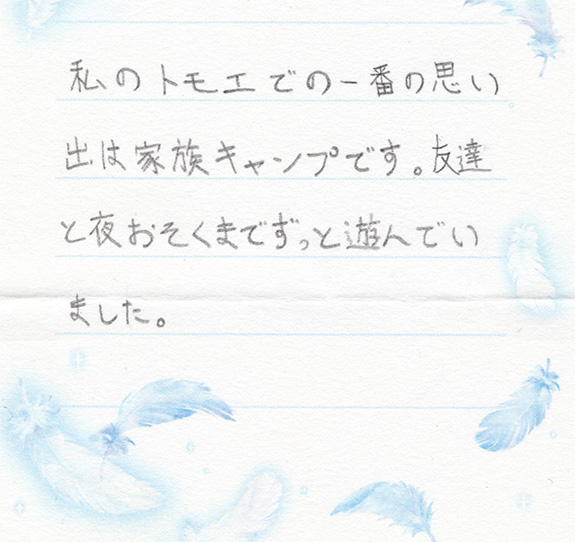 私のトモエでの一番の思い
出は家族キャンプです。友達
と夜おそくまでずっと遊んでい
ました。